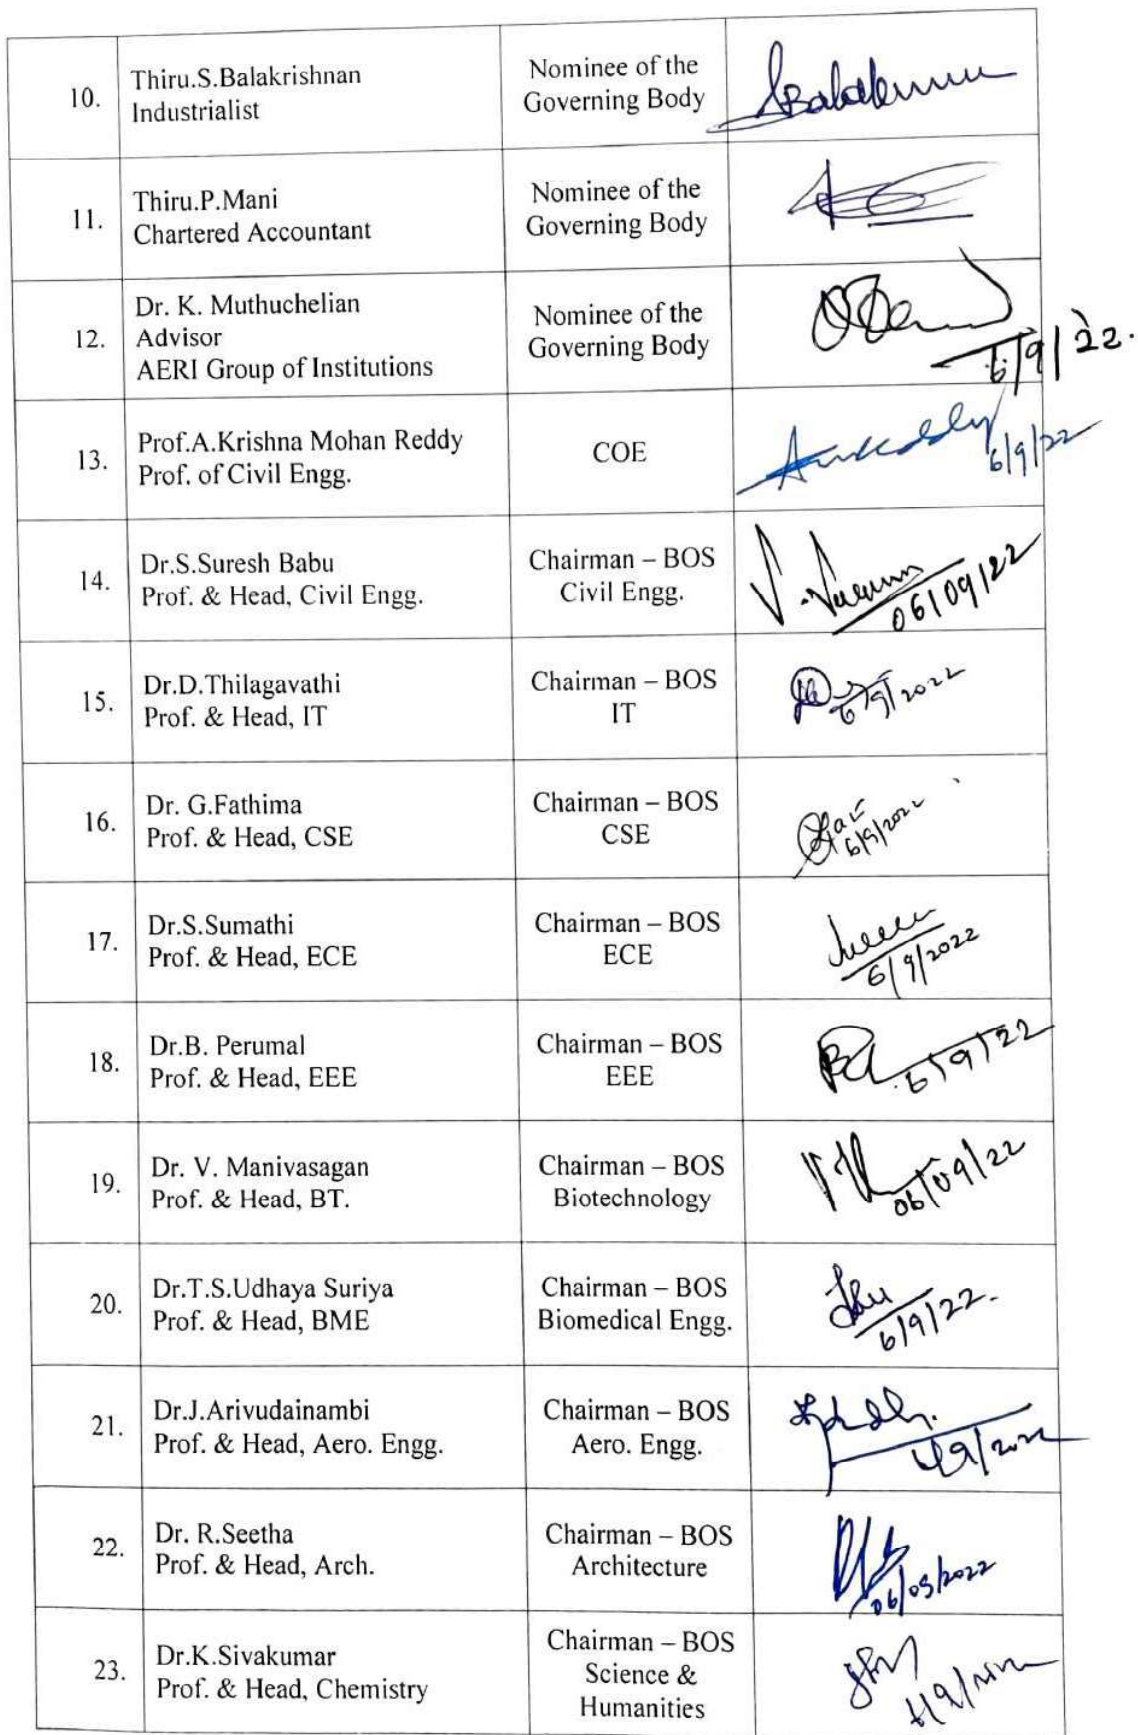 10.
Thiru.S.Balakrishnan
Industrialist
Nominee of the
Governing Body
11.
Thiru.P.Mani
Chartered Accountant
Nominee of the
Governing Body
12.
Dr. K. Muthuchelian
Advisor
AERI Group of Institutions
Nominee of the
Governing Body
6/9/22.
13.
Prof.A.Krishna Mohan Reddy
Prof. of Civil Engg.
COE
6/9/22
14.
Dr.S.Suresh Babu
Prof. & Head, Civil Engg.
Chairman – BOS
Civil Engg.
06/09/22
15.
Dr.D.Thilagavathi
Prof. & Head, IT
Chairman – BOS
IT
6/9/2022
16.
Dr. G.Fathima
Prof. & Head, CSE
Chairman – BOS
CSE
6/9/2022
17.
Dr.S.Sumathi
Prof. & Head, ECE
Chairman – BOS
ECE
6/9/2022
18.
Dr.B. Perumal
Prof. & Head, EEE
Chairman – BOS
EEE
6/9/22
19.
Dr. V. Manivasagan
Prof. & Head, BT.
Chairman – BOS
Biotechnology
06/09/22
20.
Dr.T.S.Udhaya Suriya
Prof. & Head, BME
Chairman – BOS
Biomedical Engg.
6/9/22.
21.
Dr.J.Arivudainambi
Prof. & Head, Aero. Engg.
Chairman – BOS
Aero. Engg.
22.
Dr. R.Seetha
Prof. & Head, Arch.
Chairman – BOS
Architecture
06/09/2022
23.
Dr.K.Sivakumar
Prof. & Head, Chemistry
Chairman – BOS
Science &
Humanities